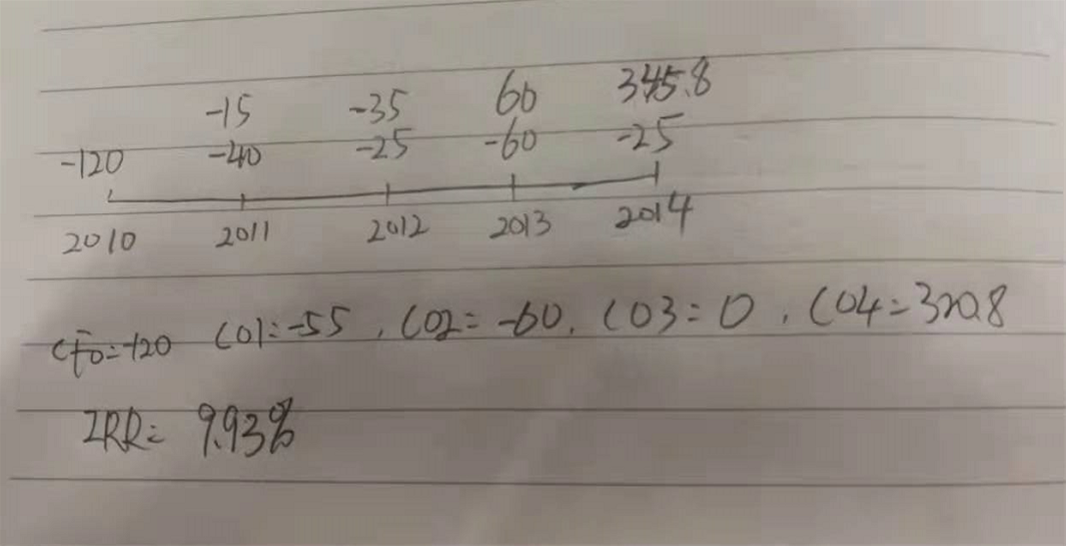 -15 -35 60 345.8
-120 -40 -25 -60 -25
2010 2011 2012 2013 2014
CF0=-120 C01=-55, C02=-60, C03=0, C04=320.8
IRR= 9.93%